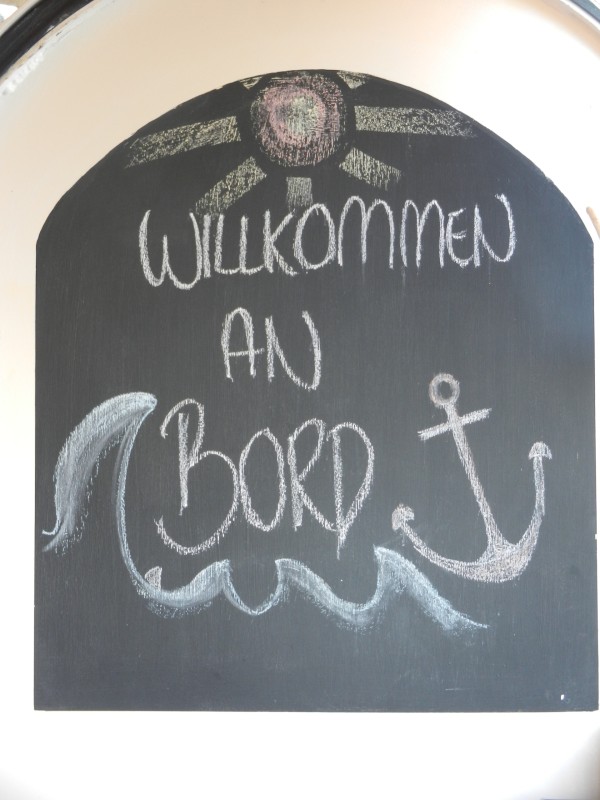 WILLKOMMEN
AN
BORD